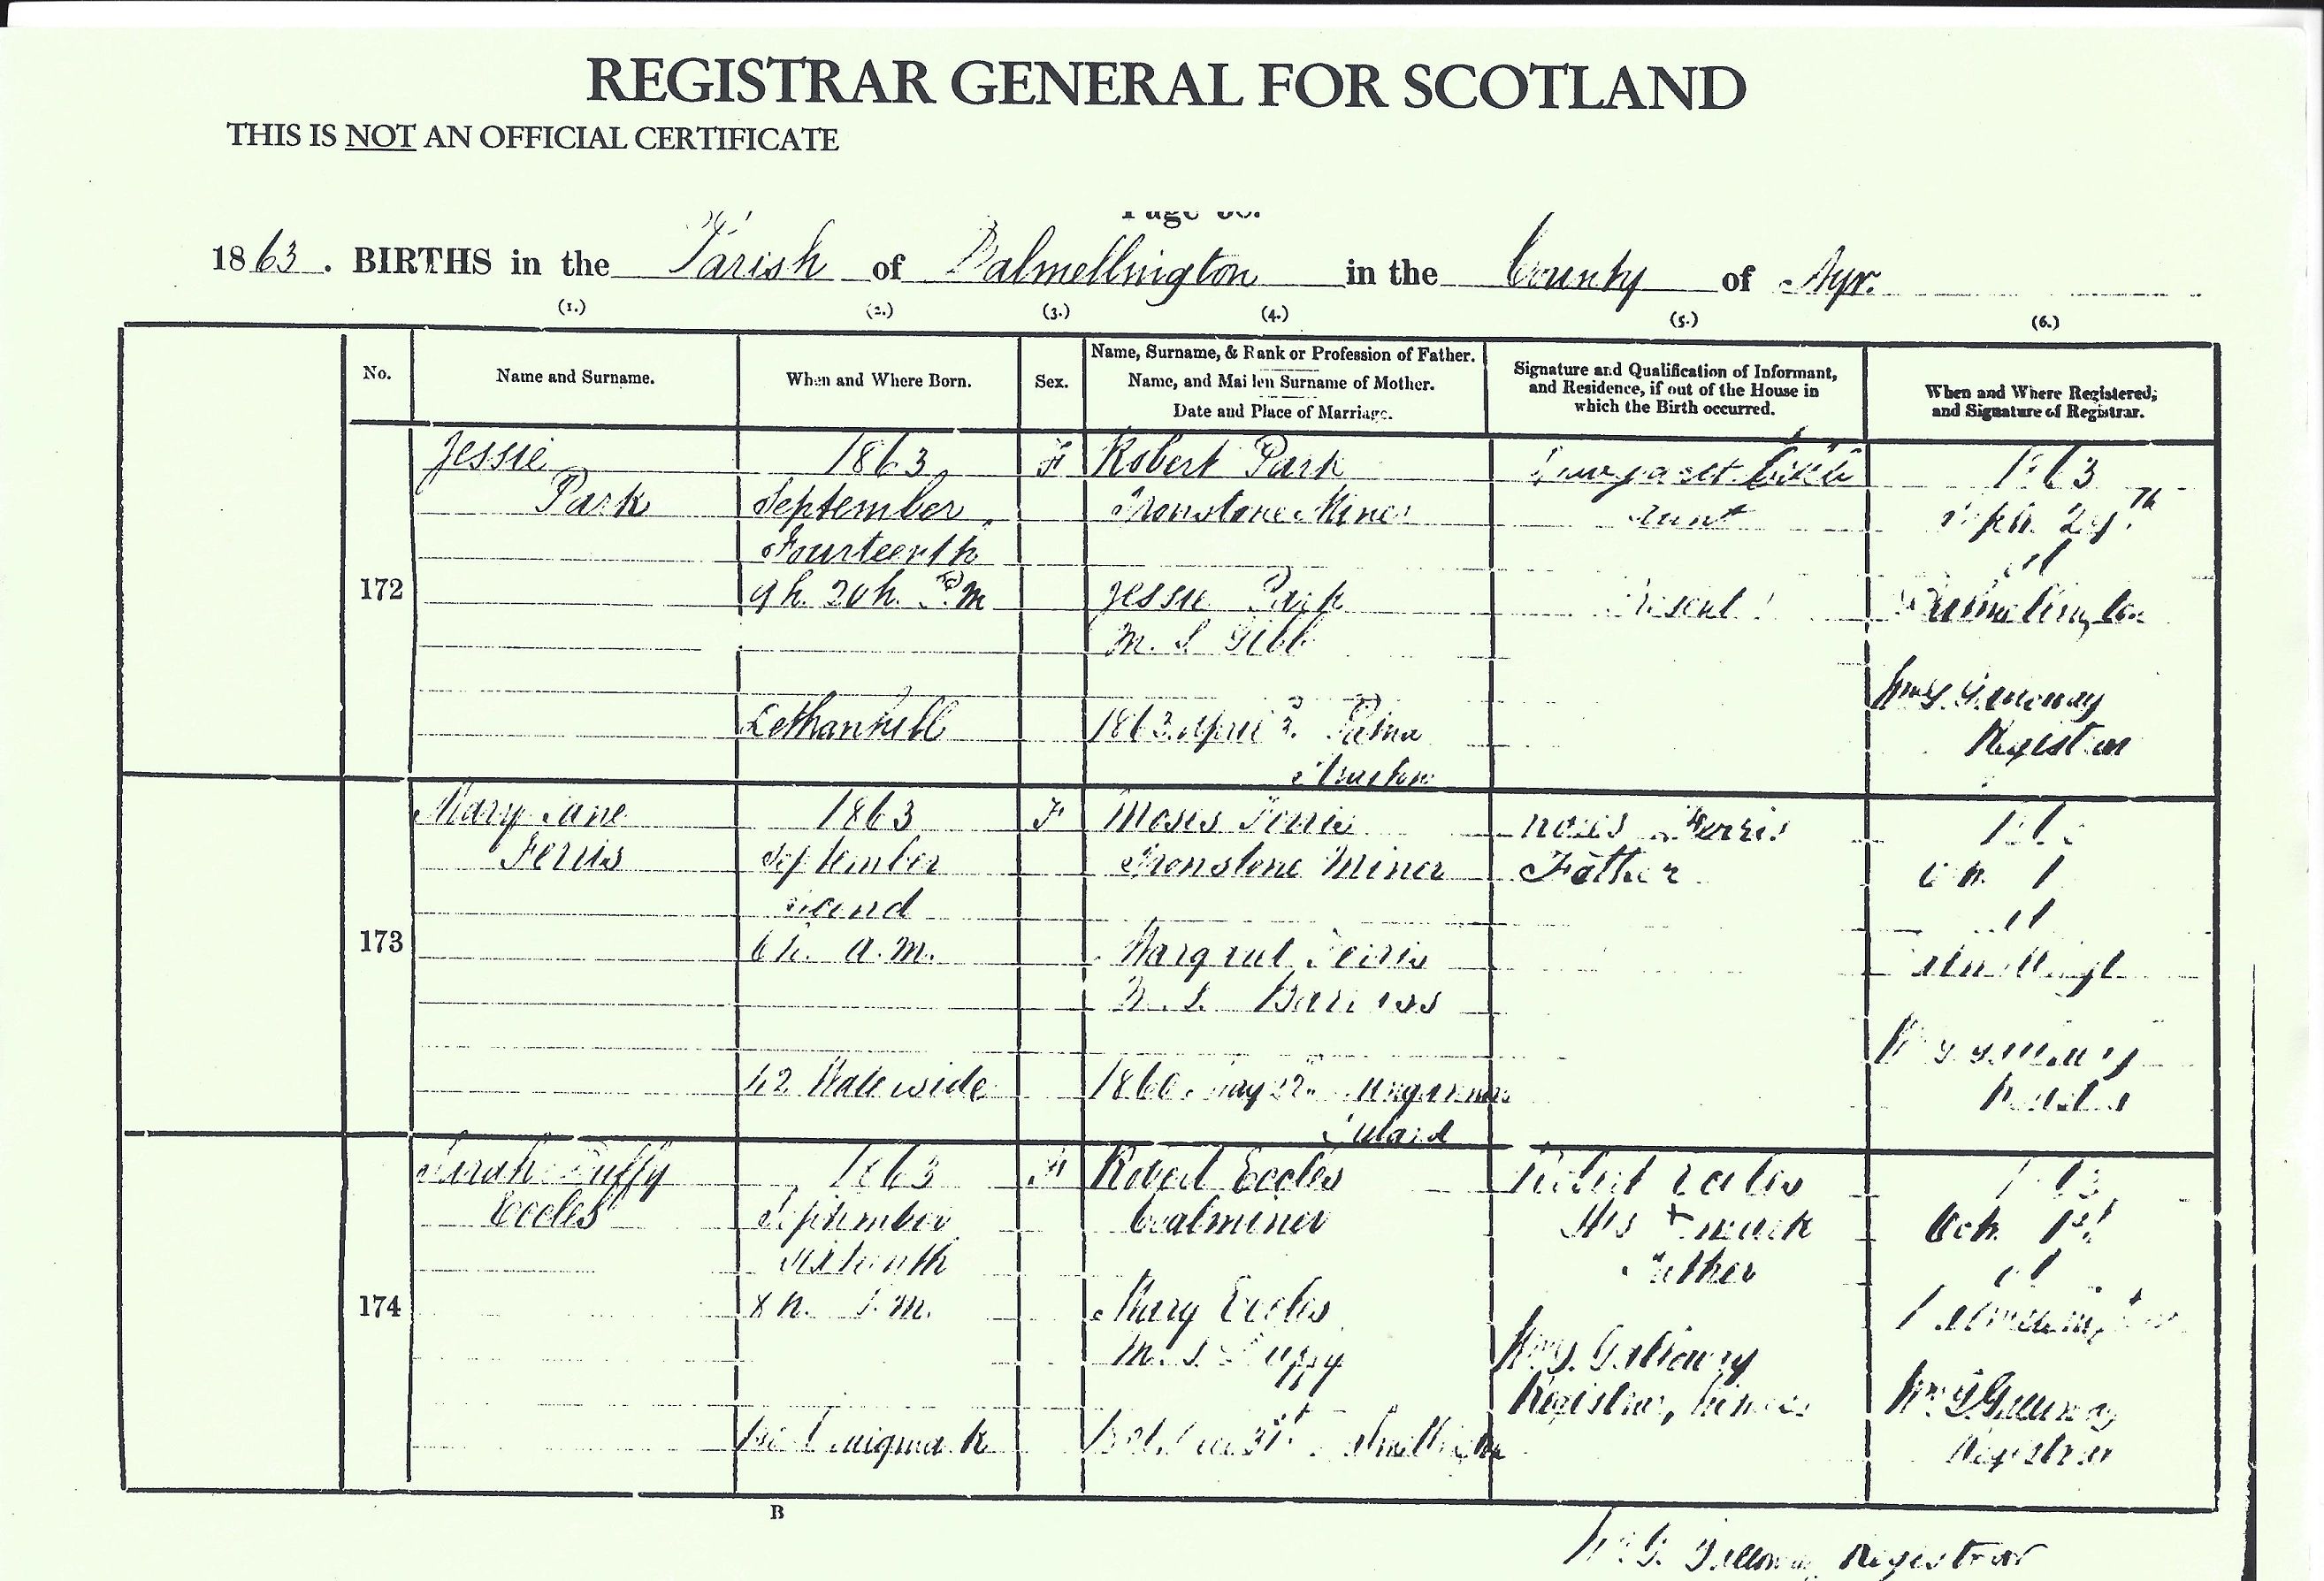 REGISTRAR GENERAL FOR SCOTLAND
THIS IS NOT AN OFFICIAL CERTIFICATE
1863. BIRTHS in the Parish of Dalmellington in the County of Ayr.
(1.) (2.) (3.) (4.) (5.) (6.)
No.
Name and Surname.
When and Where Born.
Sex.
Name, Surname, & Rank or Profession of Father.
Name, and Maiden Surname of Mother.
Date and Place of Marriage.
Signature and Qualification of Informant,
and Residence, if out of the House in
which the Birth occurred.
When and Where Registered,
and Signature of Registrar.
172
Jessie
Park
1863
September
Fourteenth
9h. 20h. P.m
Lethanhill
F
Robert Park
Ironstone Miner
Jessie Park
M. S Gibb
1863 April
Margaret
Aunt
Present
1863
Sept. 29th
at
Dalmellington
Wm G. Galloway
Registrar
173
Mary Jane
Ferris
1863
September
second
6h. a.m.
42 Waterside
F
Moses Ferris
Ironstone Miner
Margaret Ferris
M. S.
1860 May 22
Ireland
Moses Ferris
Father
Oct. 1
at
Dalmellington
Registrar
174
Sarah Duffy
Eccles
1863
September
Sixteenth
8h. M.
Craigmark
F
Robert Eccles
Coalminer
Mary Eccles
M. S. Duffy
31st Dalmellington
Robert Eccles
His + mark
Father
Wm G. Galloway
Registrar, Witness
1863
Oct. 1st
at
Dalmellington
Wm G Galloway
Registrar
B
Wm G. Galloway Registrar